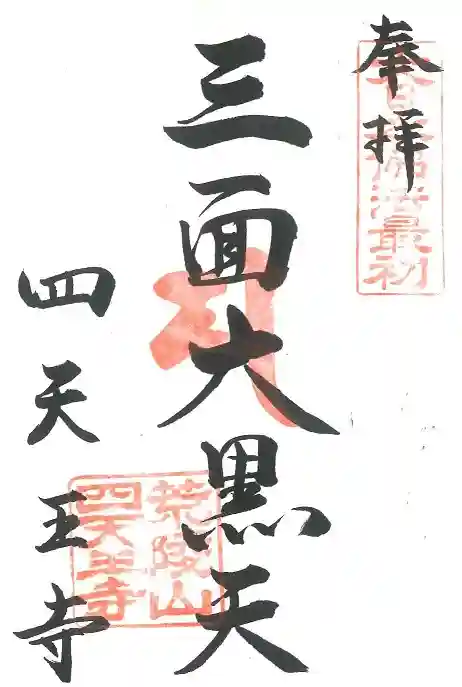 奉拝
大日本佛法最初
三面大黒天
四天王寺
荒陵山
四天王寺